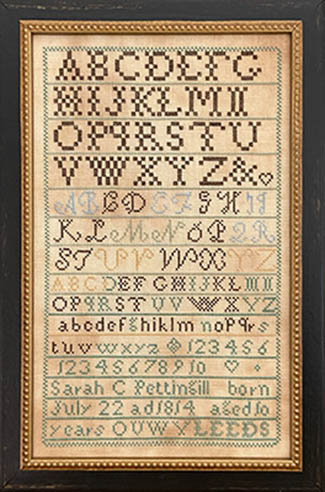 ABCDEFG
HIJKLMN
OPQRSTU
VWXYZ&
ABCDEFGHI
KLMNOPQR
STUVWXYZ
ABCDEFGHIJKLMN
OPQRSTUVWXYZ
abcdefghiklmnopqrs
tuvwxyz 123456
12345678910
Sarah C Pettingill born
July 22 ad1814 aged10
years OUWYLEEDS